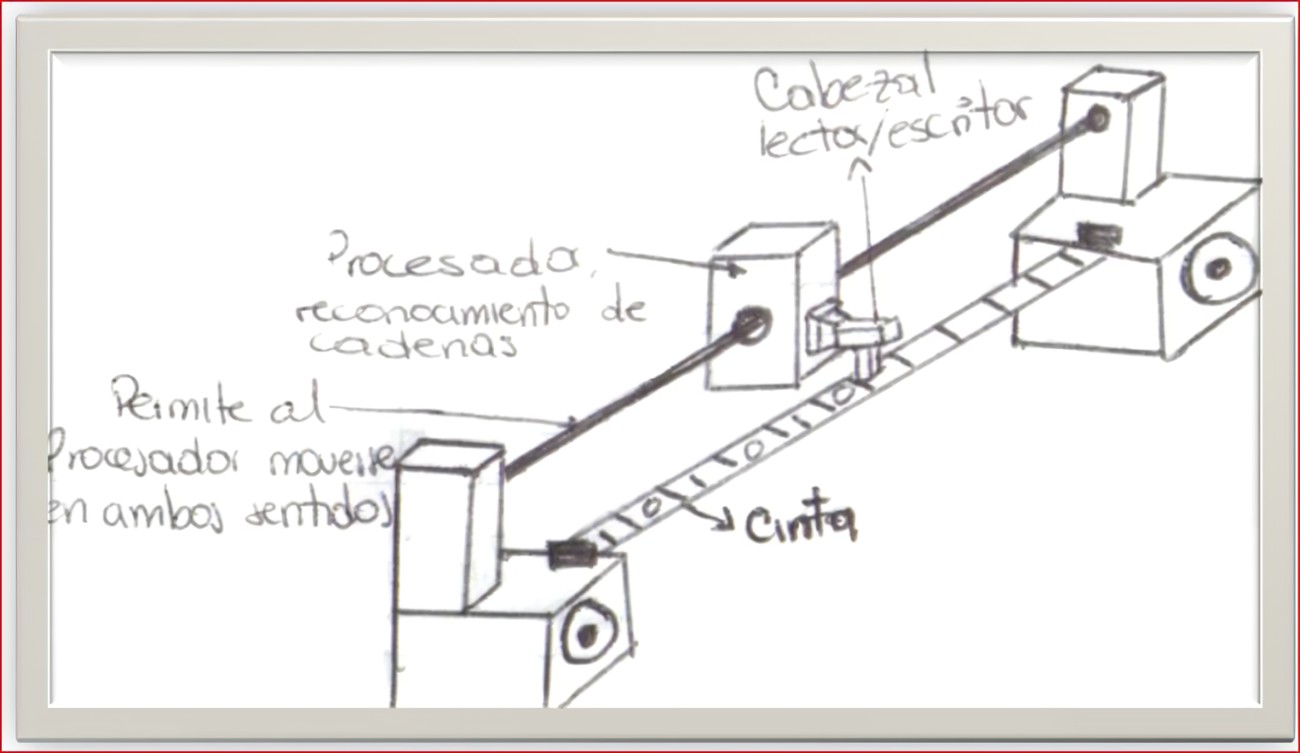 Cabezal
lector/escritor
Procesador,
reconocimiento de
cadenas
Permite al
Procesador moverse
en ambos sentidos
Cinta